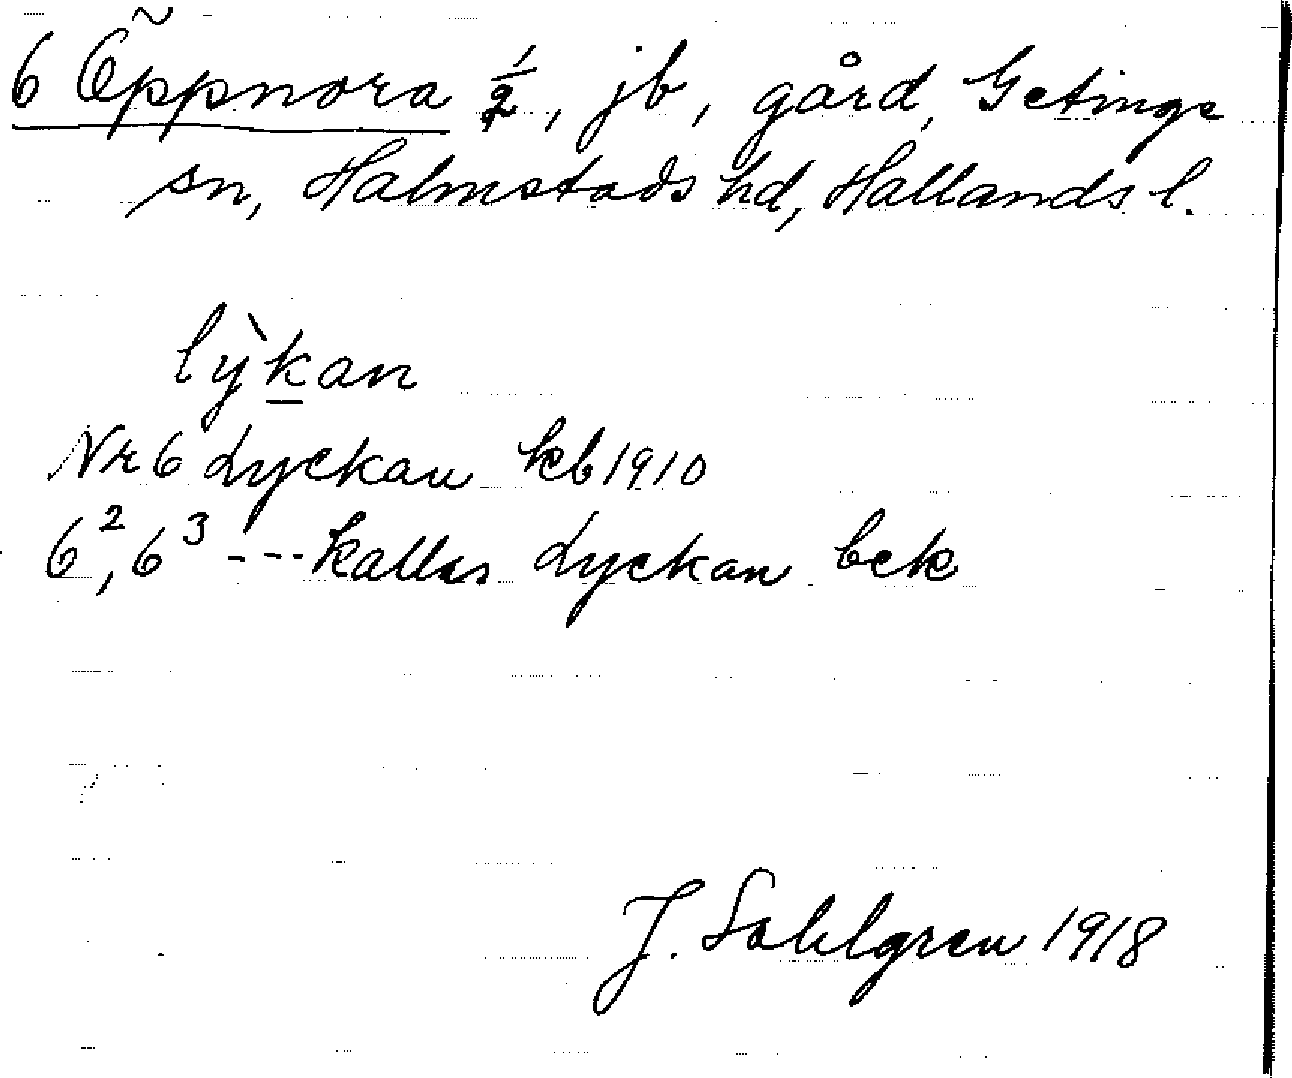 6 Öppnora 1/2, jb, gård, Getinge
sn, Halmstads hd, Hallands l.
lỳkan
Nr 6 Lyckan kb 1910
6², 6³ --- kallas Lyckan bek
J. Sahlgren 1918